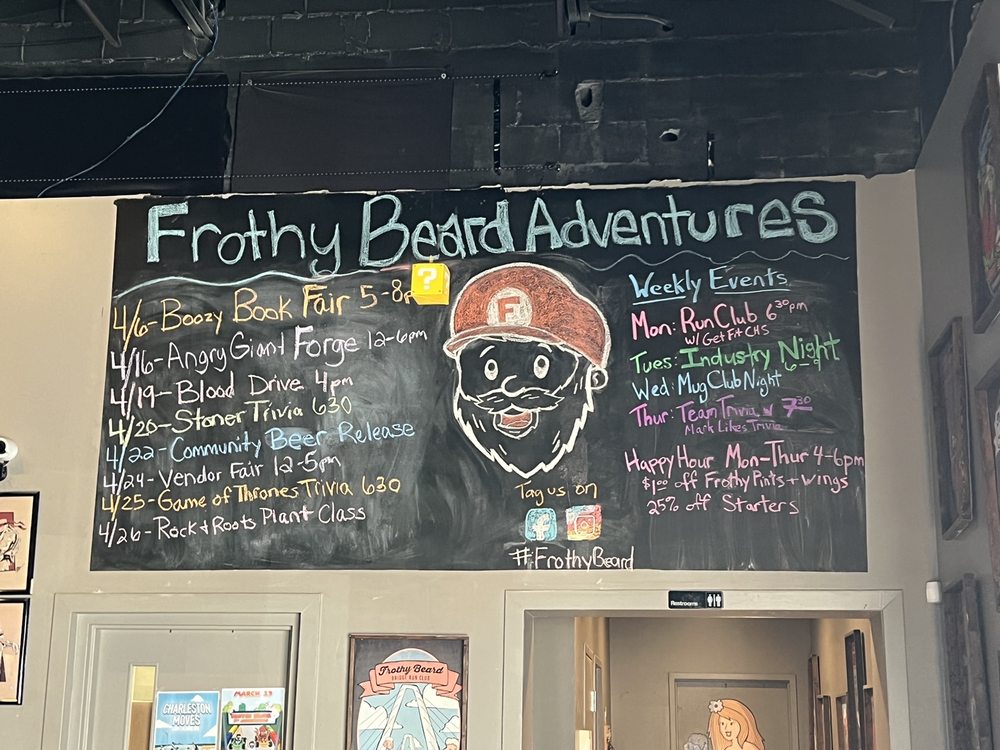 Frothy Beard Adventures
?
4/6-Boozy Book Fair 5-8p
4/16-Angry Giant Forge 12-6pm
4/19-Blood Drive 4pm
4/20-Stoner Trivia 630
4/22-Community Beer Release
4/24-Vendor Fair 12-5pm
4/25-Game of Thrones Trivia 630
4/26-Rock & Roots Plant Class
F
Tag us on
#FrothyBeard
Weekly Events
Mon: Run Club 6 30pm
w/ Get Fit CHS
Tues: Industry Night
6-9
Wed: Mug Club Night
Thur: Team Trivia w 7 30
Mark Likes Trivia
Happy Hour Mon-Thur 4-6pm
$1.00 off Frothy Pints + wings
25% off Starters
Restrooms
Frothy Beard
BRIDGE RUN CLUB
CHARLESTON
MOVES
MARCH